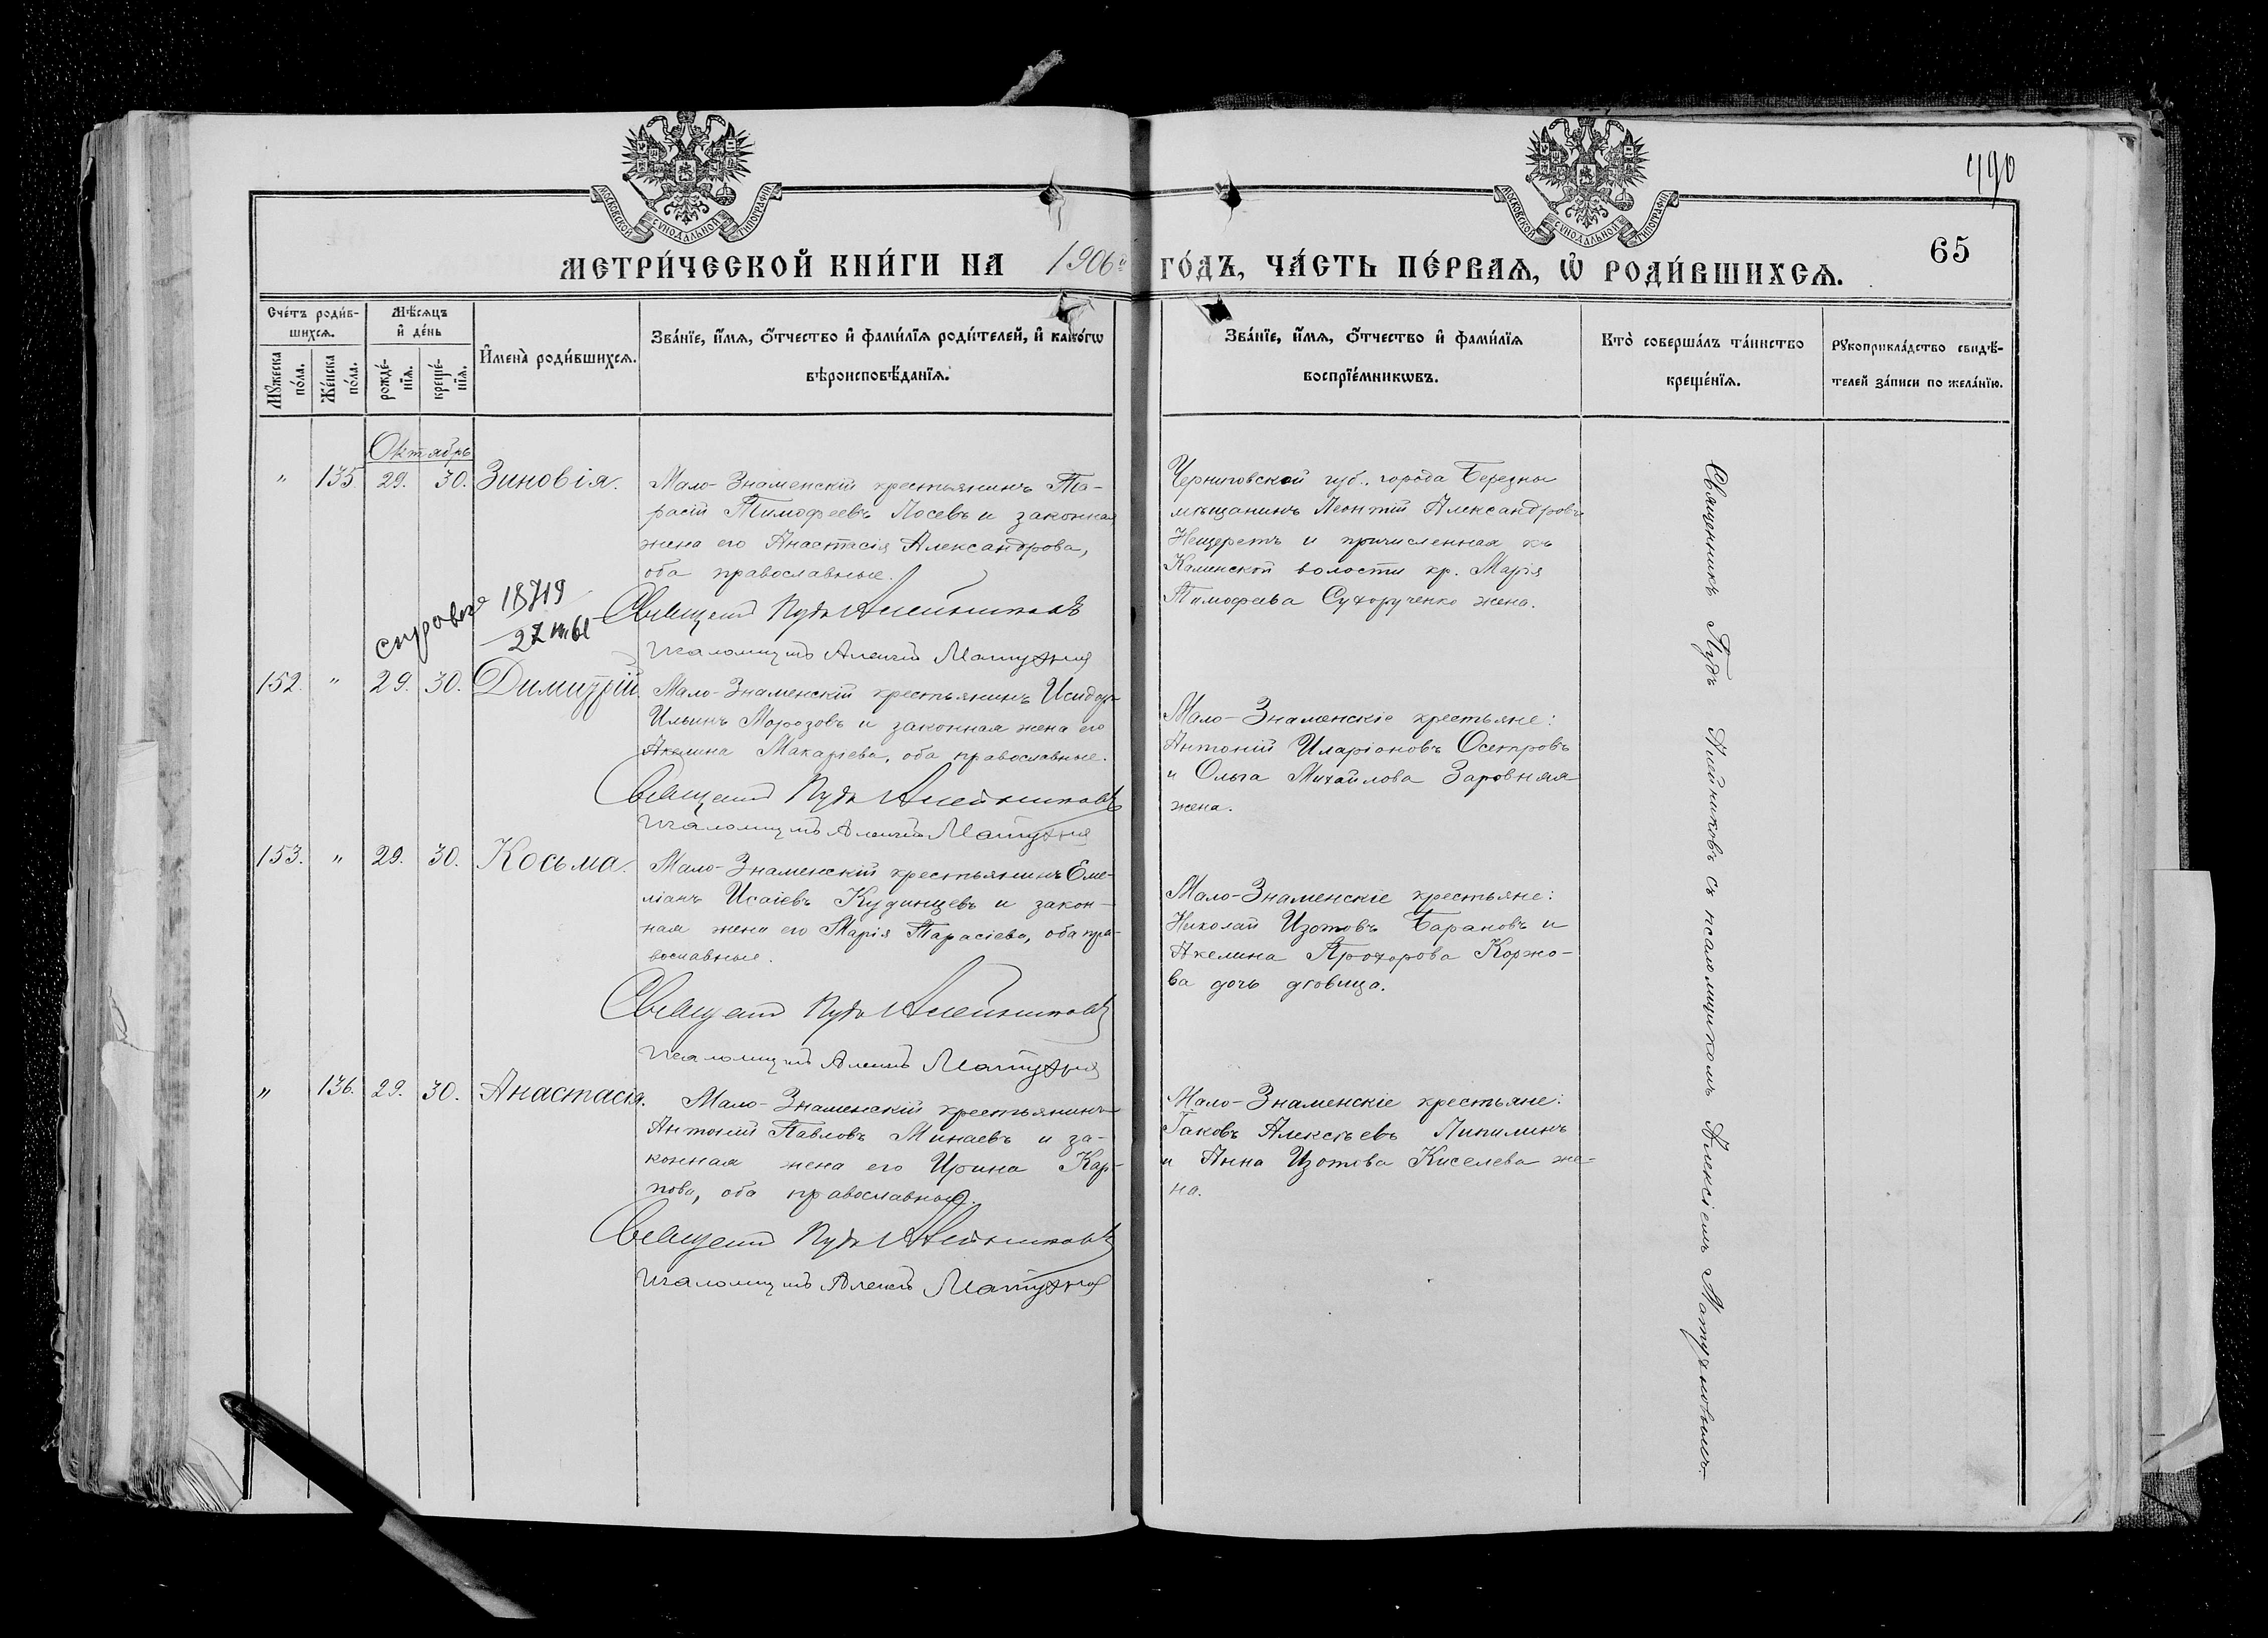 490
МОСКОВСКОЙ СѴНОДАЛЬНОЙ ТИПОГРАФІИ
МОСКОВСКОЙ СѴНОДАЛЬНОЙ ТИПОГРАФІИ
65
МЕТРИ́ЧЕСКОЙ КНИ́ГИ НА 1906й ГО́ДЪ, ЧА́СТЬ ПЕ́РВАѦ, Ѡ҆ РОДИ́ВШИХСѦ.
Сче́тъ роди́в-
шихсѧ.
Мѹ́жеска по́ла.
Же́нска по́ла.
Мѣ́сѧцъ
и҆ де́нь
рожде́-
нїѧ.
креще́-
нїѧ.
И҆мена̀ роди́вшихсѧ.
Зва́нїе, и҆́мѧ, ѻ҆́тчество и҆ фами́лїѧ роди́телей, и҆ како́гѡ
вѣроисповѣ́данїѧ.
Зва́нїе, и҆́мѧ, ѻ҆́тчество и҆ фами́лїѧ
воспрїе́мникѡвъ.
Кто̀ соверша́лъ та́инство
креще́нїѧ.
Рꙋкоприкла́дство свидѣ́-
телей за́писи по жела́нїю.
Октябрь
" 135. 29. 30. Зиновія.
Мало-Знаменскій крестьянинъ Та-
расій Тимофеевъ Лосевъ и законная
жена его Анастасія Александрова,
оба православные.
Священ Пудъ Алейниковъ
Псаломщикъ Алексій Матухня
Черниговской губ., города Березны
мѣщанинъ Леонтій Александровъ
Нещеретъ и причисленная къ
Каменской волости кр. Марія
Тимофеева Сухорученко жена.
справка 18719
152. " 29. 30. Димитрій
Мало-Знаменскій крестьянинъ Исидоръ
Ильинъ Морозовъ и законная жена его
Акелина Макаріева, оба православные.
Священ Пудъ Алейниковъ
Псаломщикъ Алексій Матухня
Мало-Знаменскіе крестьяне:
Антоній Иларіоновъ Осетровъ
и Ольга Михайлова Заровняя
жена.
153. " 29. 30. Косьма.
Мало-Знаменскій крестьянинъ Еме-
ліанъ Исаіевъ Кудинцевъ и закон-
ная жена его Марія Тарасіева, оба пра-
вославные.
Священ Пудъ Алейниковъ
Псаломщикъ Алексій Матухня
Мало-Знаменскіе крестьяне:
Николай Изотовъ Барановъ и
Акелина Прохорова Коржо-
ва дочь дѣвица.
" 136. 29. 30. Анастасія.
Мало-Знаменскій крестьянинъ
Антоній Павловъ Минаевъ и за-
конная жена его Ирина Кар-
пова, оба православные.
Священ Пудъ Алейниковъ
Псаломщикъ Алексій Матухня
Мало-Знаменскіе крестьяне:
Іаковъ Алексѣевъ Липилинъ
и Анна Изотова Киселева же-
на.
Священникъ Пудъ Алейниковъ съ псаломщикомъ Алексіемъ Матухновымъ.